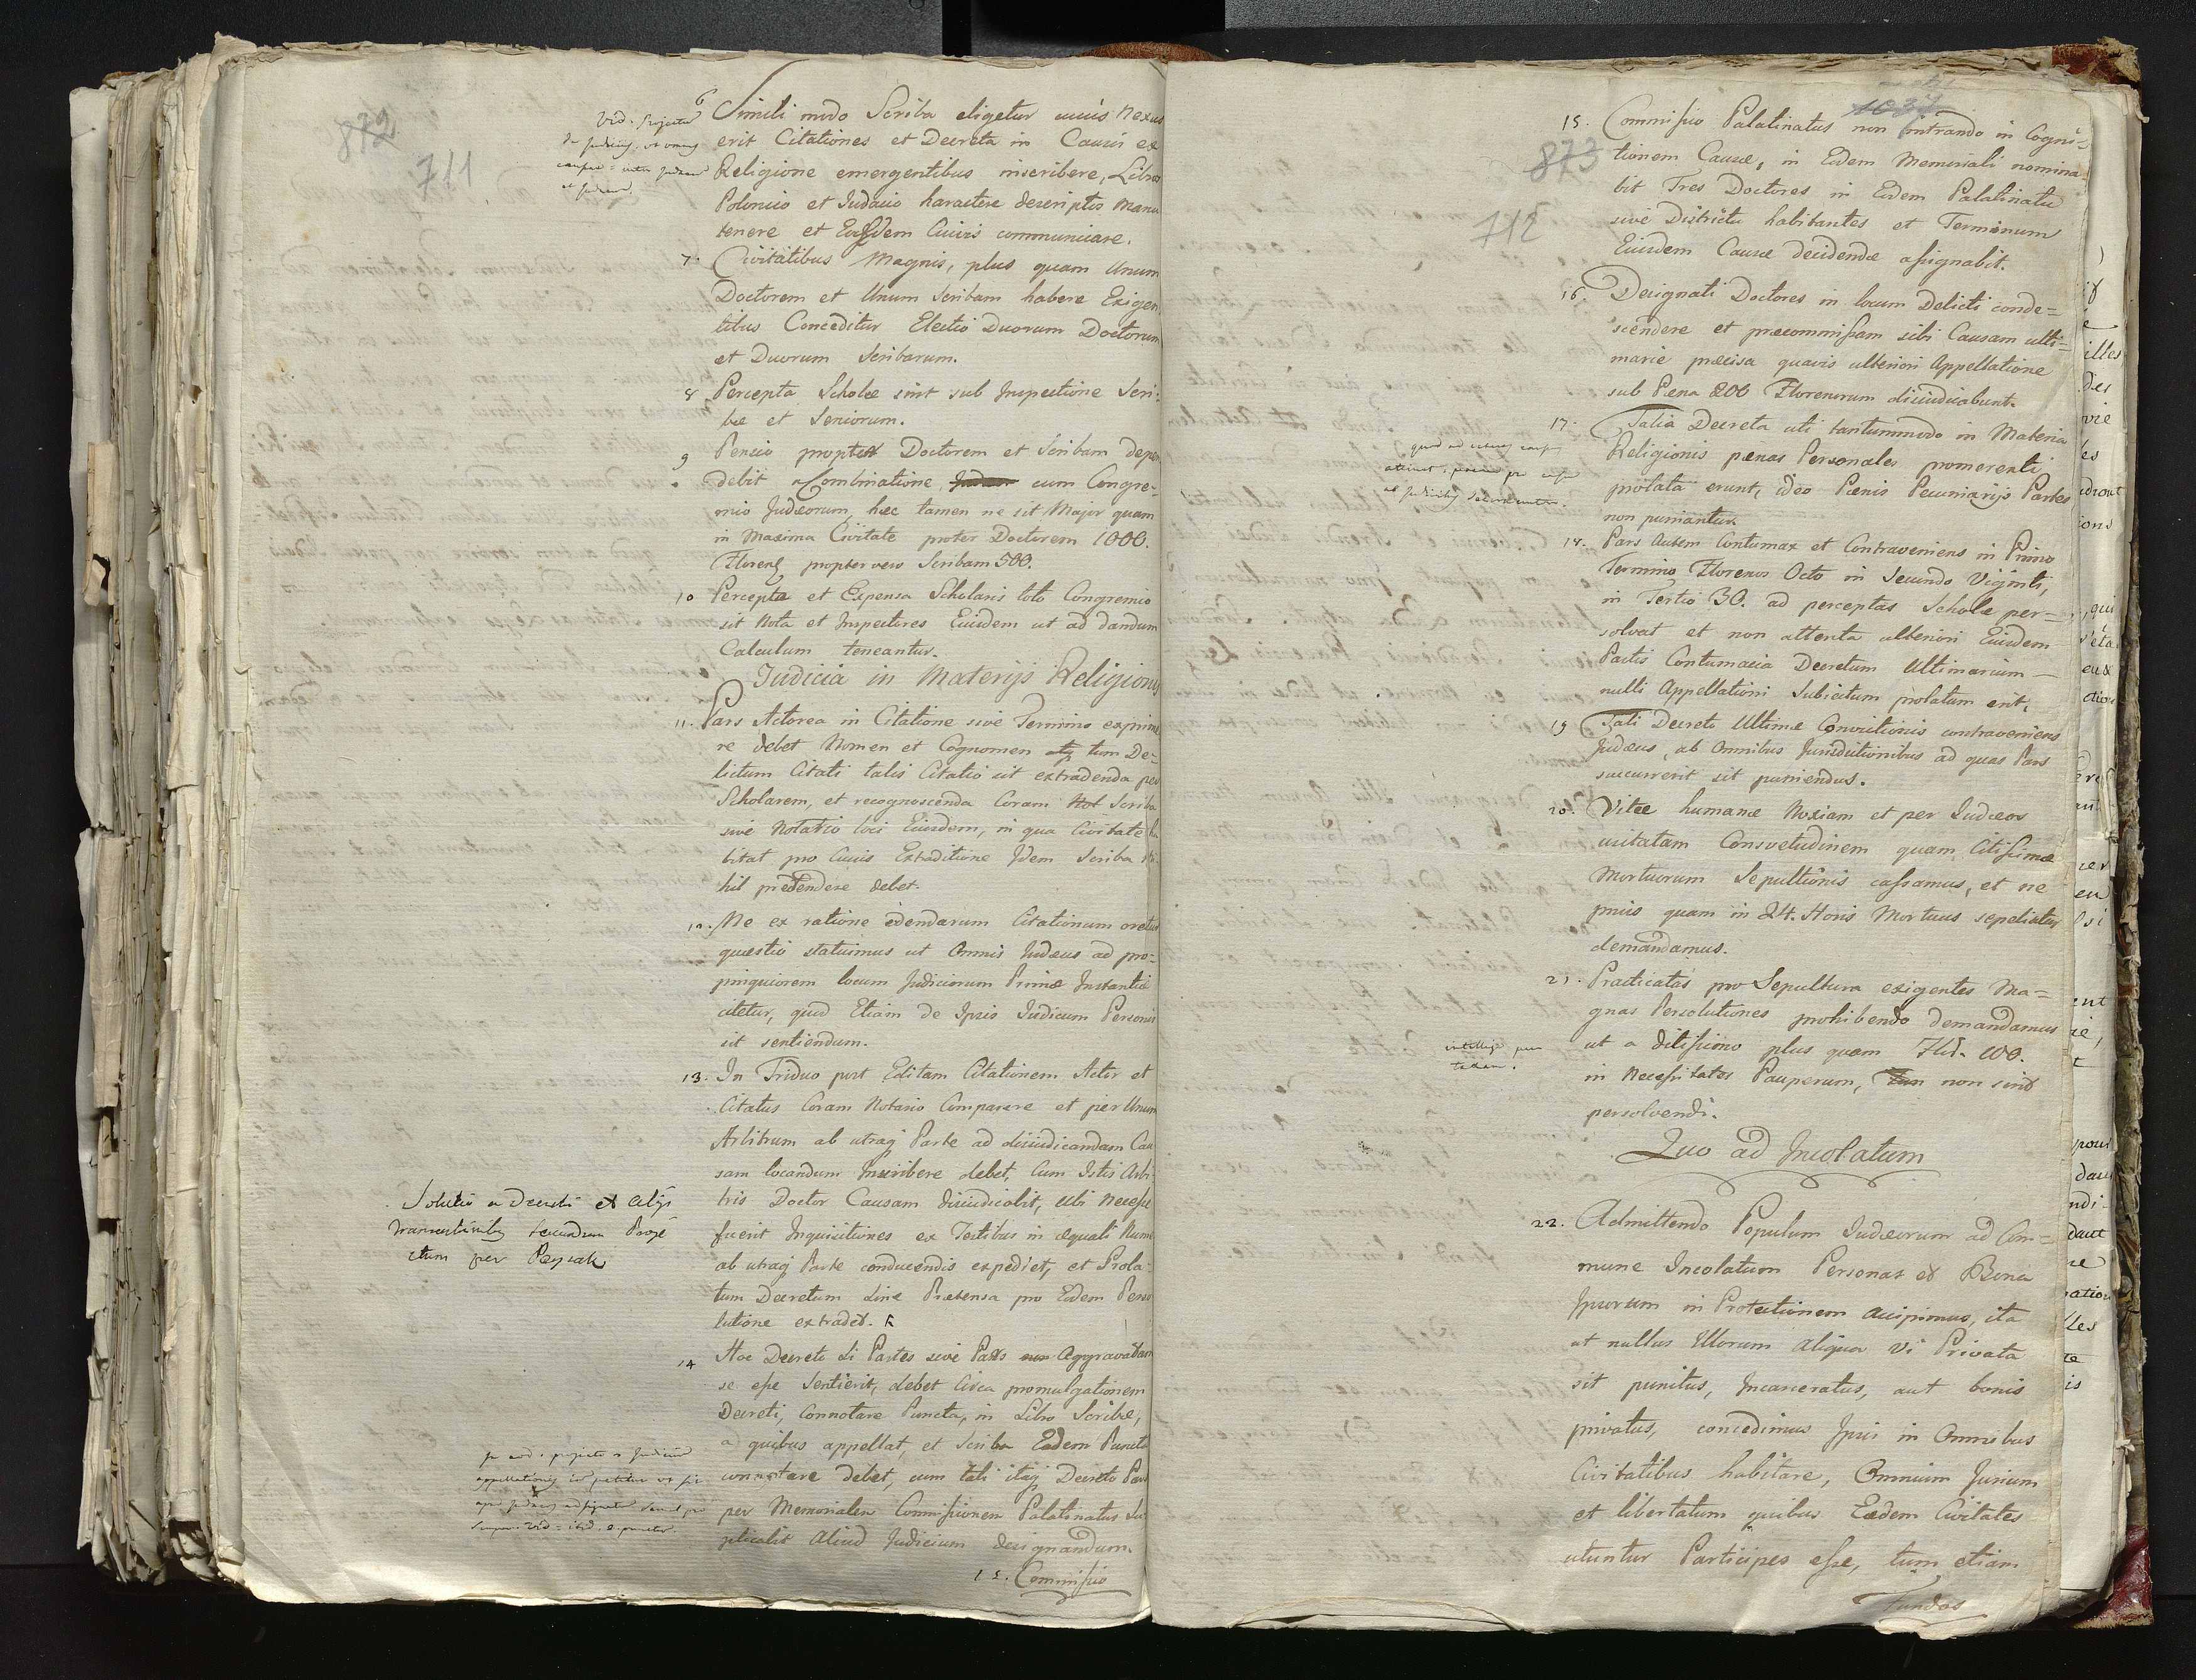 872
711
Vid. Projectum
de Judiciis, ut omnes
causae inter Judaeum
et Judaeum.
6 Simili modo Scriba eligetur cuius nexus
erit Citationes et Decreta in Causis ex
Religione emergentibus inscribere, Libros
Polonico et Judaico haractere descriptos manu
tenere et Eosdem Cuivis communicare.
7. Civitatibus Magnis, plus quam Unum
Doctorem et Unum Scribam habere Exigen
tibus Conceditur Electio Duorum Doctorum
et Duorum Scribarum.
8 Percepta Scholae sint sub Inspectione Scri-
bae et Seniorum.
9 Pensio propter Doctorem et Scribam depen
debit a Combinatione cum Congre-
mio Judæorum, hæc tamen ne sit Major quam
in Maxima Civitate propter Doctorem 1000.
Floren propter vero Scribam 500.
10 Percepta et Expensa Scholaris toto Congremio
sit Nota et Inspectores Eiusdem ut ad dandum
Calculum teneantur.
Judicia in Materijs Religionis
11. Pars Actorea in Citatione sive Termino exprime
re debet Nomen et Cognomen atq tum De-
lictum Citati talis Citatio sit extradenda per
Scholarem, et recognoscenda Coram Not Scriba
sive Notario loci Eiusdem, in qua Civitate ha
bitat pro Cuius Extraditione Idem Scriba ni-
hil prætendere debet.
12. Ne ex ratione edendarum Citationum oretur
quæstio statuimus ut Omnis Judæus ad pro-
pinquiorem locum Judiciorum Primæ Instantiæ
citetur, quod Etiam de Ipsis Judicum Personis
sit sentiendum.
13. In Triduo post Editam Citationem Actor et
Citatus Coram Notario Comparere et per Unum
Arbitrum ab utraq Parte ad disiudicandam Cau
sam locandum Inscribere debet, Cum Istis Arbi-
tris Doctor Causam disiudicabit, ubi Necesse
fuerit Inquisitiones ex Testibus in æquali Nume
ab utraq Parte conducendis expediet, et Prola-
tum Decretum sine Prætensa pro Eodem Perso
lutione extradet.
Solutio a Decreti et alijs
transcutientibus secundum Proje
ctum per Peysak
14 Hoc Decreto si Partes sive Pars non Aggravatam
se esse sentierit, debet Circa promulgationem
Decreti, Connotare Puncta, in Libro Scribæ,
a quibus appellat, et Scriba Eadem Puncta
connotare debet, cum tali itaq Decreto Pars
per Memorialem Commissionem Palatinatus Su
plicabit Aliud Judicium designandum.
15. Commissio
1037
873
712
15. Commissio Palatinatus non intrando in Cogni-
tionem Causæ, in Eodem Memoriali nomina-
bit Tres Doctores in Eodem Palatinatu
sive Districtu habitantes et Terminum
Eiusdem Causæ decidendæ assignabit.
16. Designati Doctores in locum Delicti conde=
scendere et præcommissam sibi Causam ulti=
marie præcisa quavis ulteriori Appellatione
sub Pæna 200 Florenorum disiudicabunt.
17. Talia Decreta uti tantummodo in Materia
Religionis pænas Personales promerenti
prolata erunt, ideo Pænis Pecuniarijs Partes
non puniantur.
18. Pars Autem Contumax et Contraveniens in Primo
Termino Florenos Octo in Secundo Viginti,
in Tertio 30. ad perceptas Scholæ per=
solvat et non attenta ulteriori Eiusdem
Partis Contumacia Decretum Ultimarium —
nulli Appellationi Subiectum prolatum erit.
19 Tali Decreto Ultimæ Convictionis contraveniens
Judæus, ab Omnibus Jurisdictionibus ad quas Pars
succurrerit sit puniendus.
20. Vitæ humanæ Noxiam et per Judæos
usitatam Consvetudinem quam Citissimæ
Mortuorum Sepultionis cassamus, et ne
prius quam in 24. Horis Mortuus sepeliatur
demandamus.
21. Practicatas pro Sepultura exigentes Ma=
gnas Persolutiones prohibendo demandamus
ut a ditissimo plus quam Fld. 100.
in Necessitates Pauperum, non sint
persolvendi.
Quo ad Incolatum
22. Admittendo Populum Judæorum ad Com=
mune Incolatum Personas et Bona
Ipsorum in Protectionem accipimus, ita
ut nullus Illorum aliqua Vi Privata
sit punitus, Incarceratus, aut bonis
privatus, concedimus Ipsis in Omnibus
Civitatibus habitare, Omnium Jurium
et libertatum quibus Eædem Civitates
utuntur Participes esse, tum etiam
Fundos